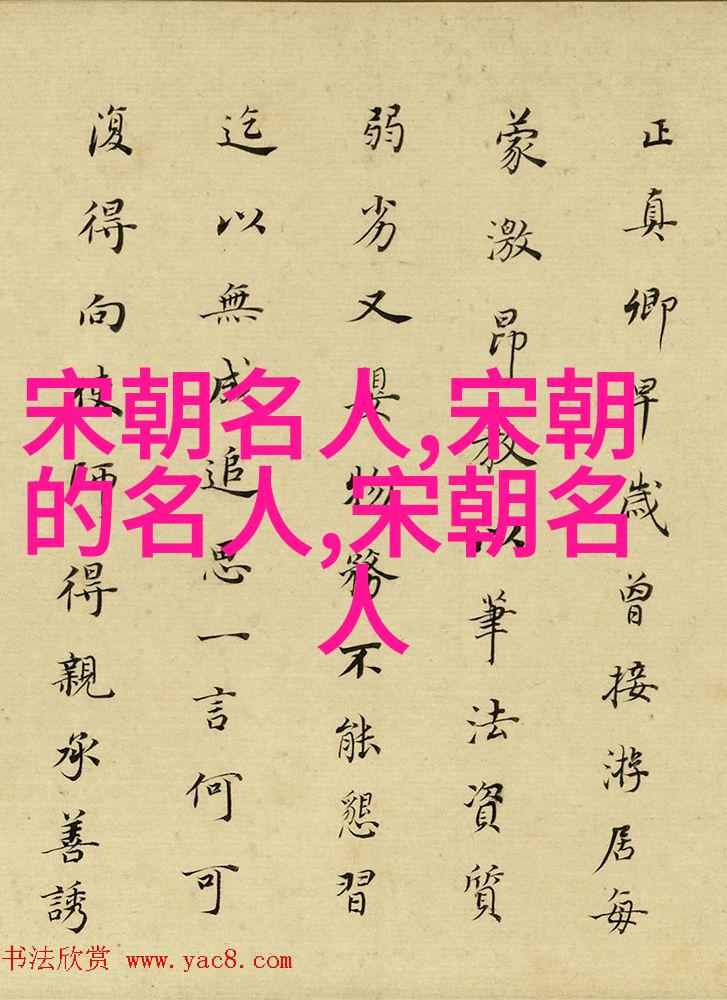 正真卿早歲曾接游居每
蒙激昂教以筆法資質
弱劣又嬰物務不能懇習
迄以無成追思一言何可
復得向使師得親承善誘
宋朝名人,宋朝
的名人,宋朝名
人
书法欣赏 www.yac8.com